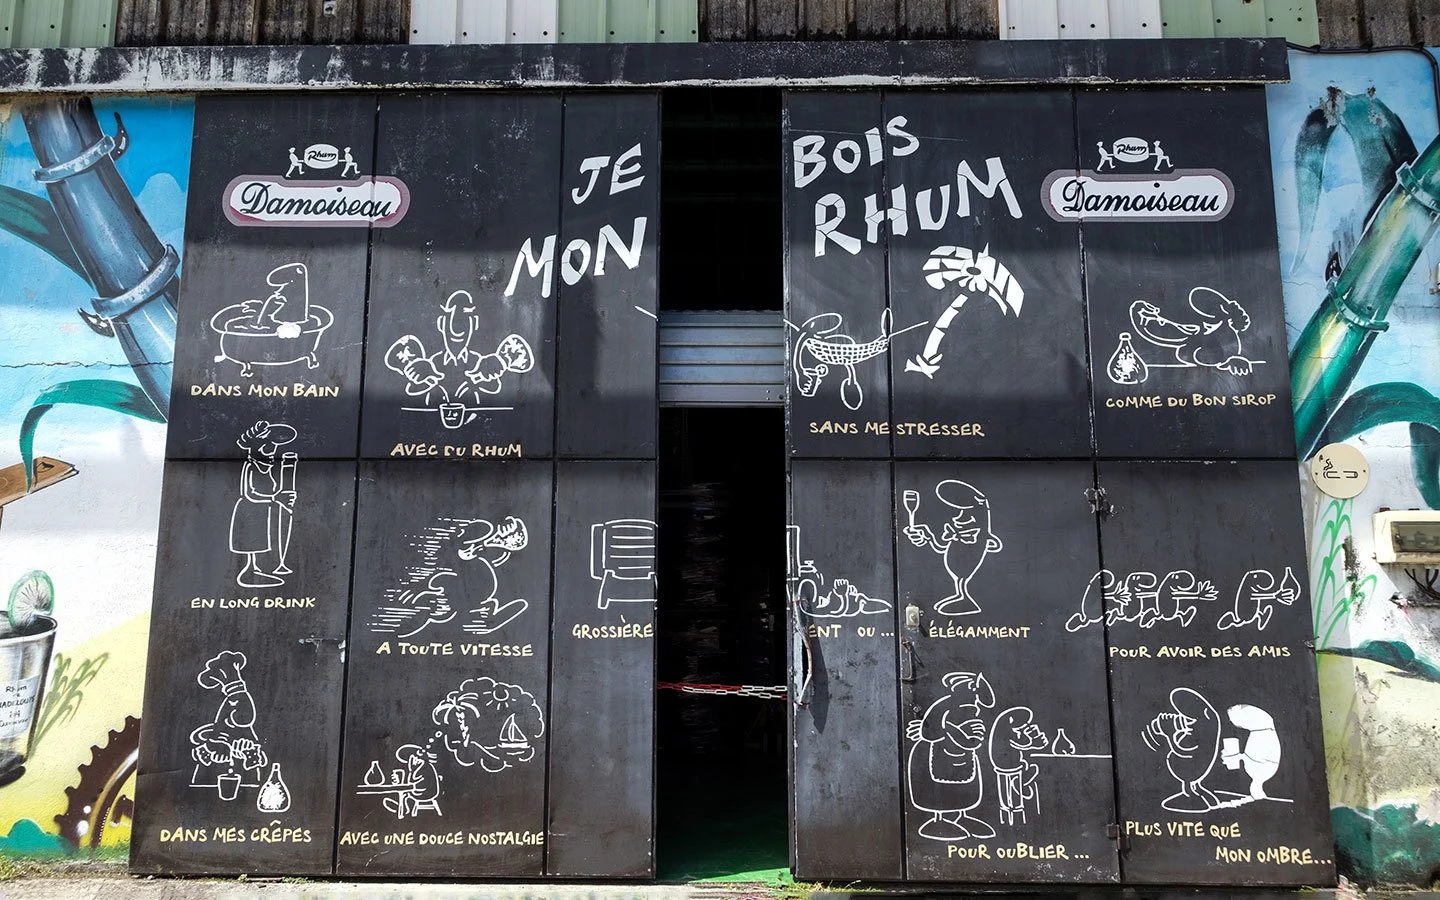 Rhum
Damoiseau
JE BOIS
MON RHUM
Rhum
Damoiseau
DANS MON BAIN
AVEC DU RHUM
SANS ME STRESSER
COMME DU BON SIROP
EN LONG DRINK
A TOUTE VITESSE
GROSSIÈRE
ENT OU ...
ÉLÉGAMMENT
POUR AVOIR DES AMIS
DANS MES CRÊPES
AVEC UNE DOUCE NOSTALGIE
POUR OUBLIER ...
PLUS VITE QUE
MON OMBRE...
Rhum